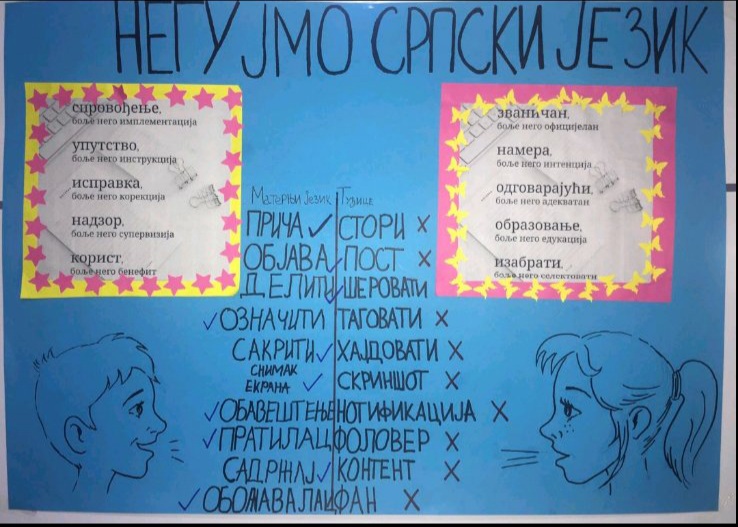 НЕГУЈМО СРПСКИ ЈЕЗИК
спровођење,
боље него имплементација
упутство,
боље него инструкција
исправка,
боље него корекција
надзор,
боље него супервизија
корист,
боље него бенефит
званичан,
боље него официјелан
намера,
боље него интенција
одговарајући,
боље него адекватан
образовање,
боље него едукација
изабрати,
боље него селектовати
Матерњи језик Туђице
ПРИЧА ✓ СТОРИ X
ОБЈАВА ✓ ПОСТ X
ДЕЛИТИ ✓ ШЕРОВАТИ
✓ ОЗНАЧИТИ ТАГОВАТИ X
САКРИТИ ✓ ХАЈДОВАТИ X
СНИМАК
ЕКРАНА ✓ СКРИНШОТ X
✓ ОБАВЕШТЕЊЕ НОТИФИКАЦИЈА X
✓ ПРАТИЛАЦ ФОЛОВЕР X
САДРЖАЈ ✓ КОНТЕНТ X
✓ ОБОЖАВАЛАЦ ФАН X